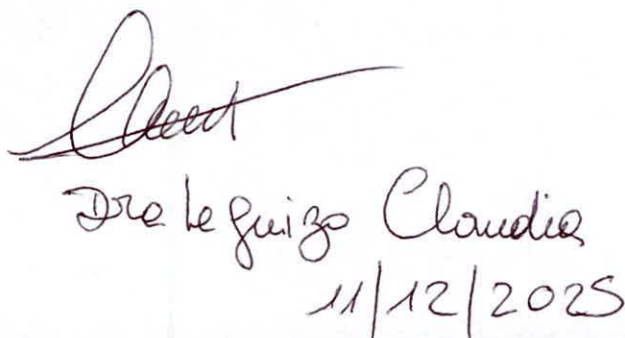 Dra Leguizo Claudia
11/12/2025